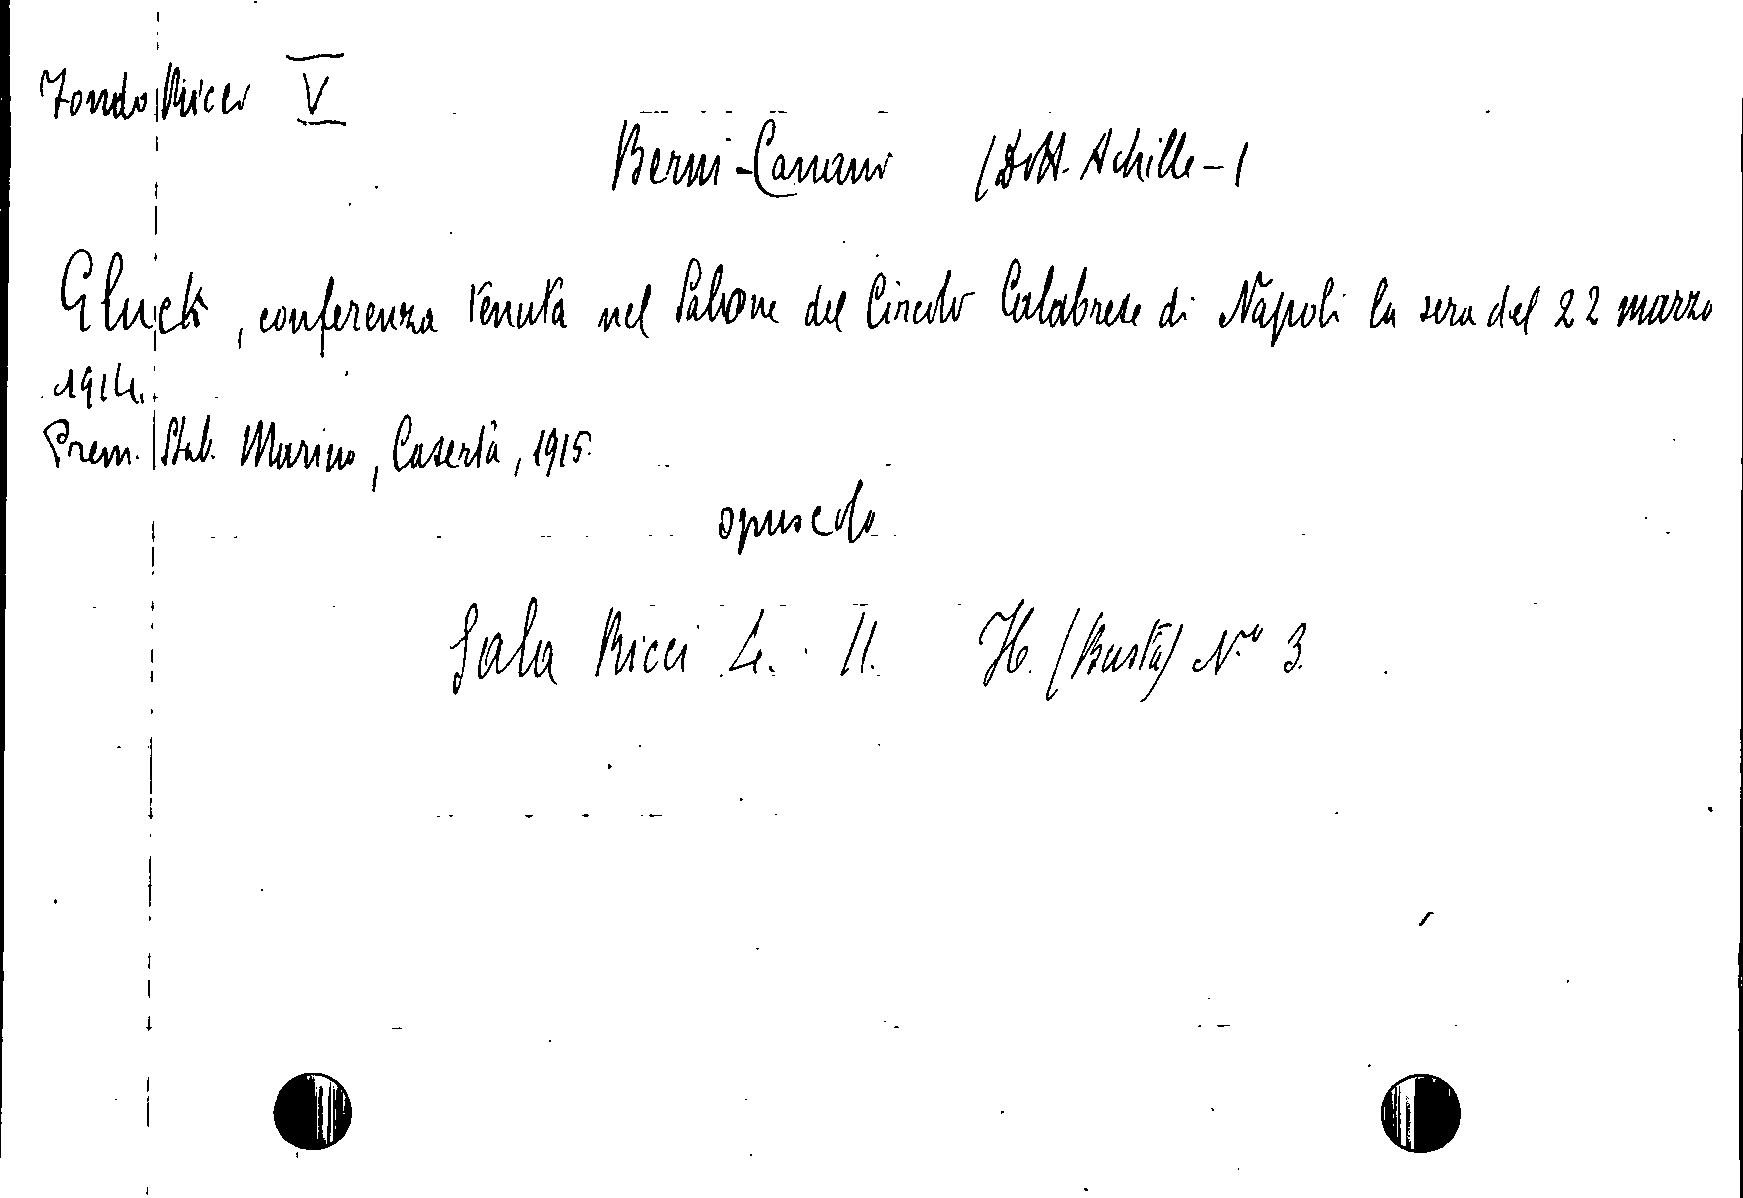 Fondo Ricci V
Berni-Canani (Dott. Achille-)
Gluck, conferenza tenuta nel Salone del Circolo Calabrese di Napoli la sera del 22 marzo
1914.
Prem. Stab. Marino, Caserta, 1915.
opuscolo
Sala Ricci L. 11. H. (Busta) N.º 3